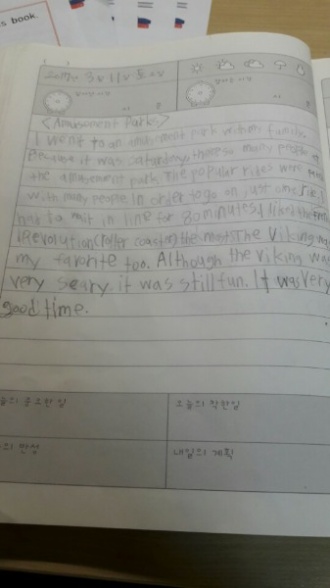 s book.
3월 11일 토요일
<Amusement Parks>
I went to an amusement park with my family.
Because it was Saturday, there so many people at
the amusement park. The popular rides were
with many people. In order to go on just one ride, I
had to wait in line for 80 minutes. I liked the
Revolution (roller coaster) the most. The Viking
my favorite too. Although the viking was
very scary, it was still fun. It was very
good time.
오늘의 중요한 일
오늘의 착한일
의 반성
내일의 계획